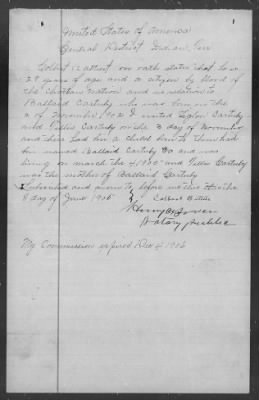 United States of America
Central District Indian Ter
Colbert on oath states that he is
29 years of age and a citizen by blood of
the Choctaw Nation and no relation to
Ballard Cartuby who was born on the
3 of November 1902 I visited
and Cartuby on the 3 day of November
and there had bin a child born to them had
bin named Ballard Cartuby and was
living on march the 4 1905 and Cartuby
was the mother of Ballard Cartuby
Subscribed and sworn to before me this the
8 day of June 1905
Colbert
Henry Bowen
Notary Public
My Commission expires Dec 4 1906